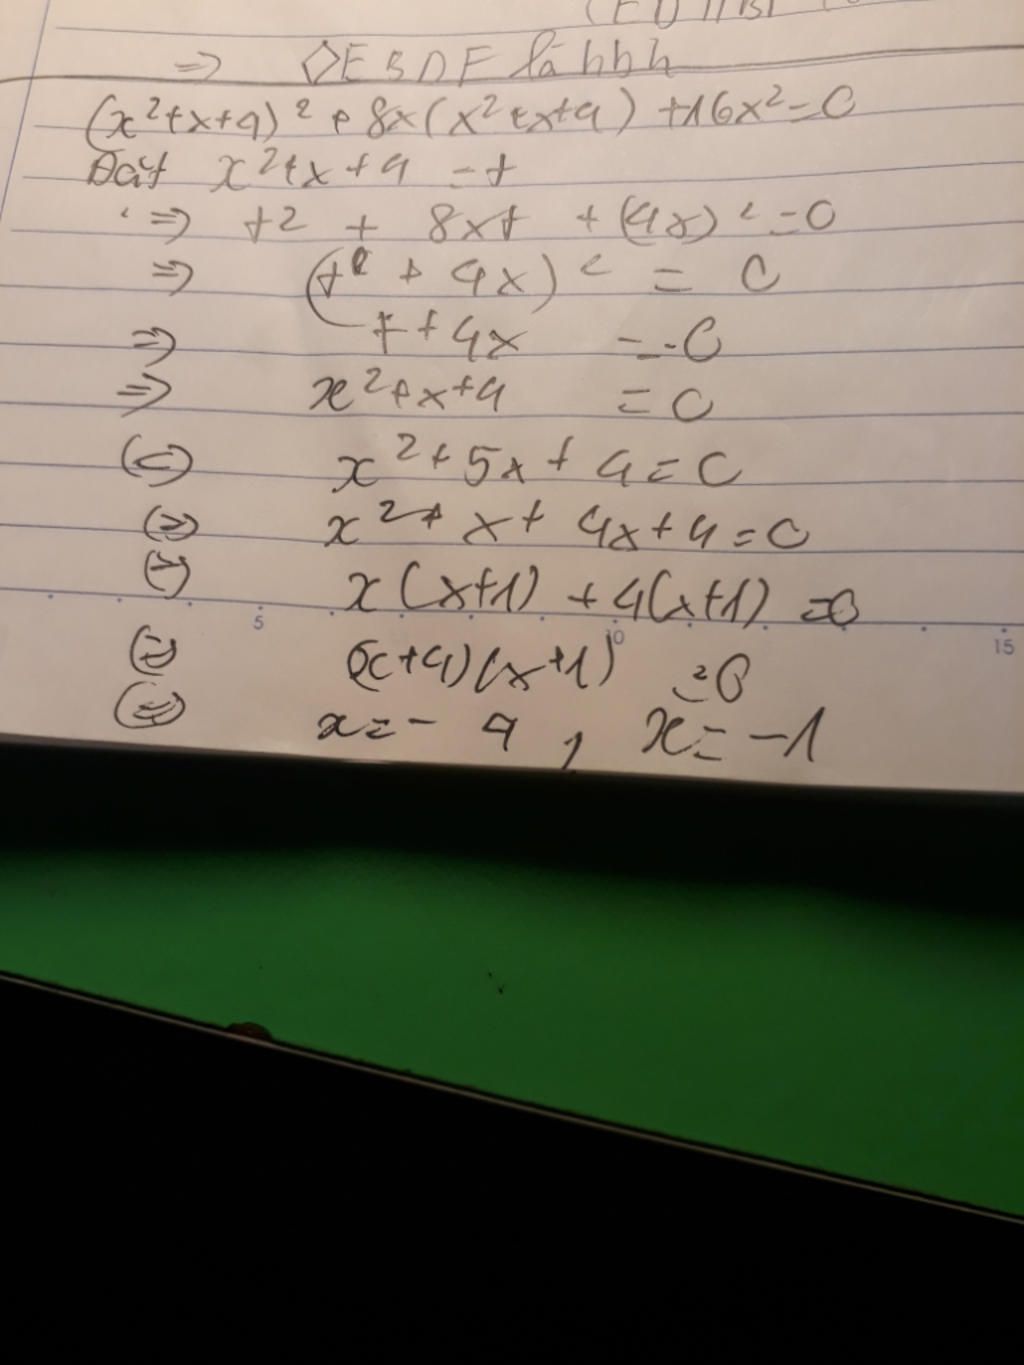 ⇒ ◇EBDF là hbh
(x²+x+4)² + 8x(x²+x+4) +16x²=0
Đặt x²+x+4 =t
⇒ t2 + 8xt + (4x)² =0
⇒ (t + 4x)² = 0
⇒ t+4x = 0
⇒ x²+x+4 = 0
(=) x²+5x+4=0
(=) x²+x+4x+4=0
(=) x(x+1)+4(x+1) =0
(=) (x+4)(x+1) =0
(=) x=-4, x=-1
5 10 15